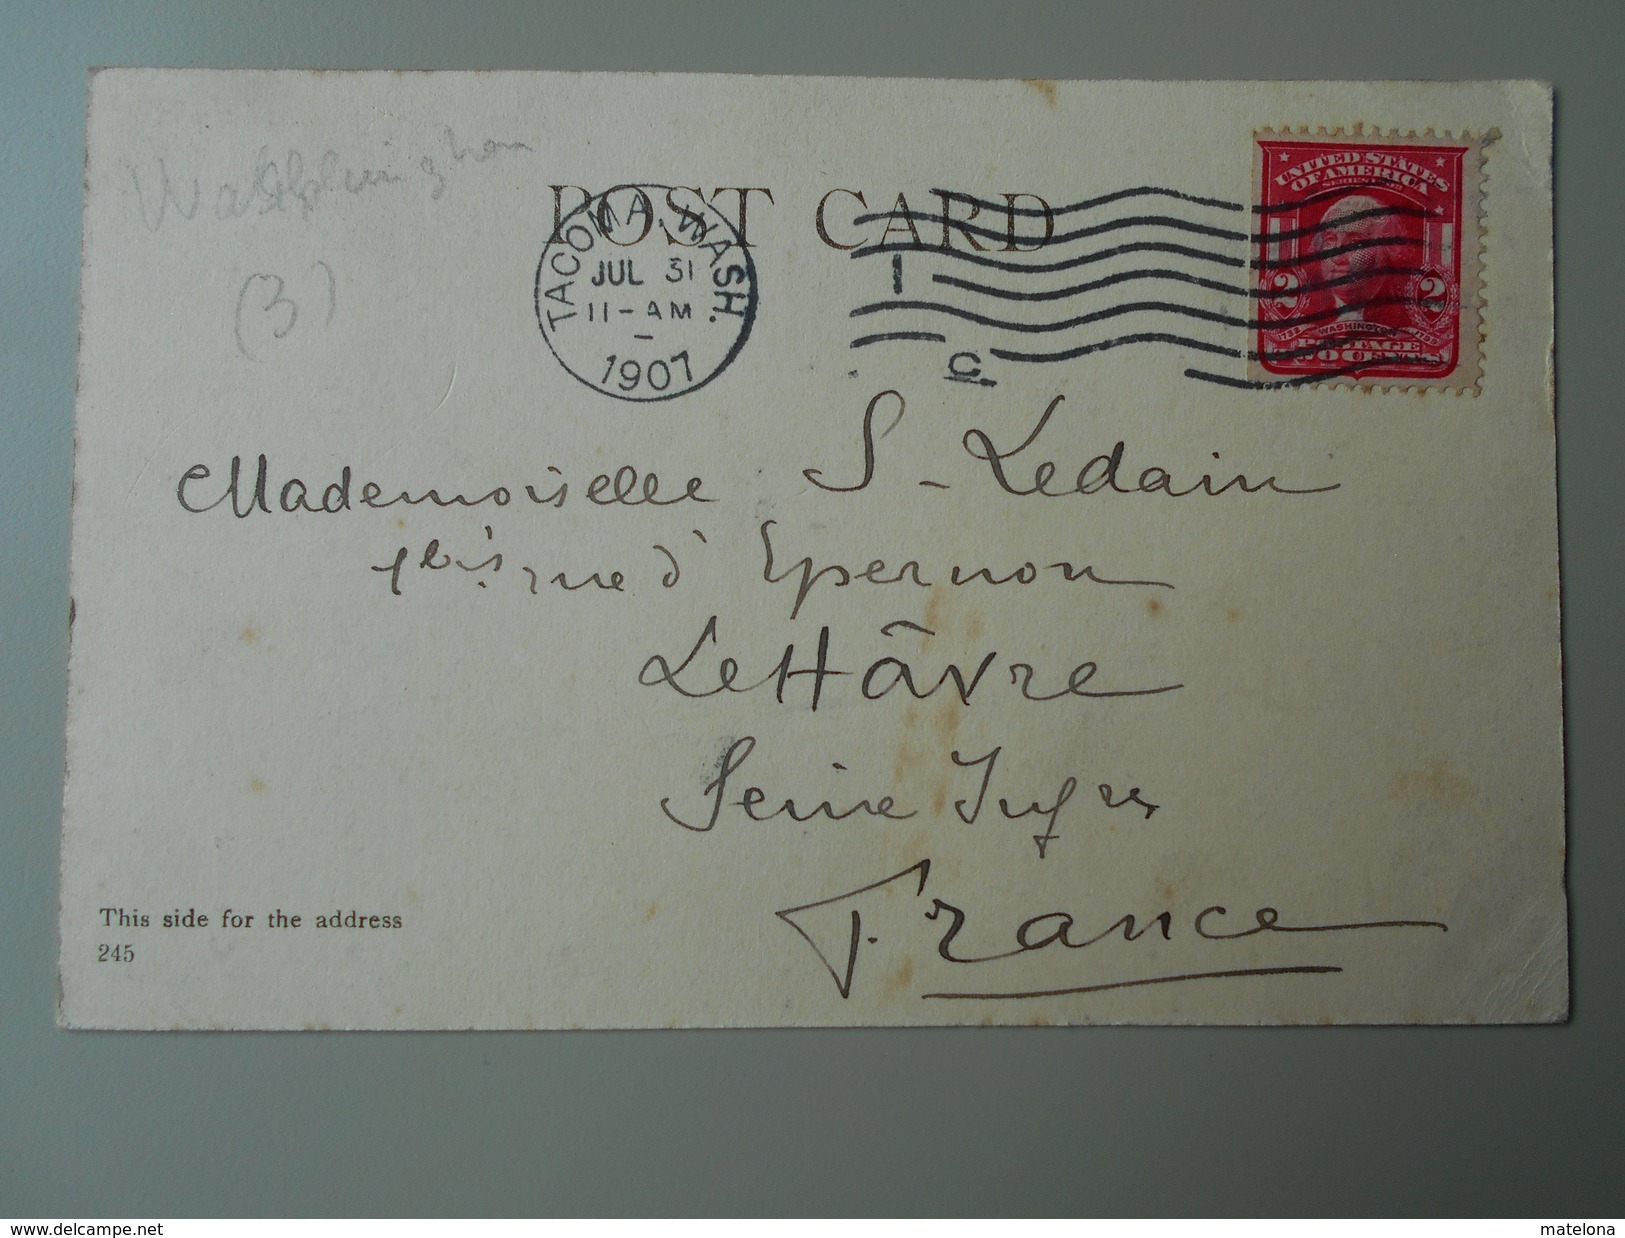 Washington
(3)
POST CARD
TACOMA, WASH.
JUL 31
11-AM
1907
1
C.
UNITED STATES
OF AMERICA
SERIES 1902
2 2
1732 WASHINGTON 1799
POSTAGE
TWO CENTS
Mademoiselle S. Ledain
1bis, rue d'Epernon
Le Hâvre
Seine Infre
France
This side for the address
245
www.delcampe.net
matelona